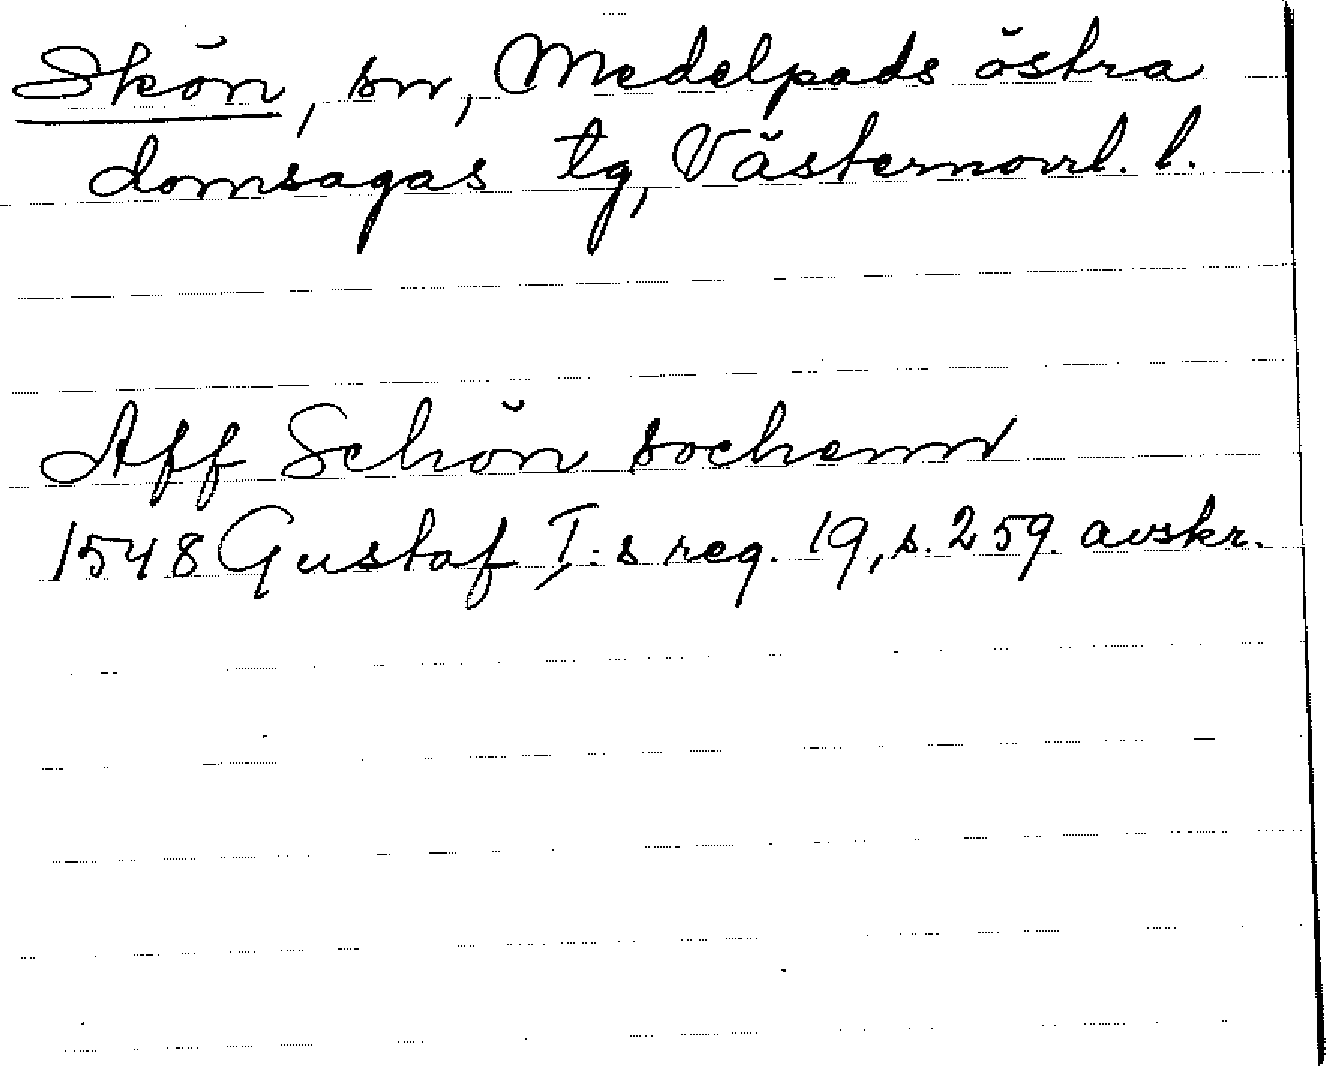 Skön, sn, Medelpads östra
domsagas tg, Västernorrl. l.
Aff Schön sochenn
1548 Gustaf I:s reg. 19, s. 259. avskr.